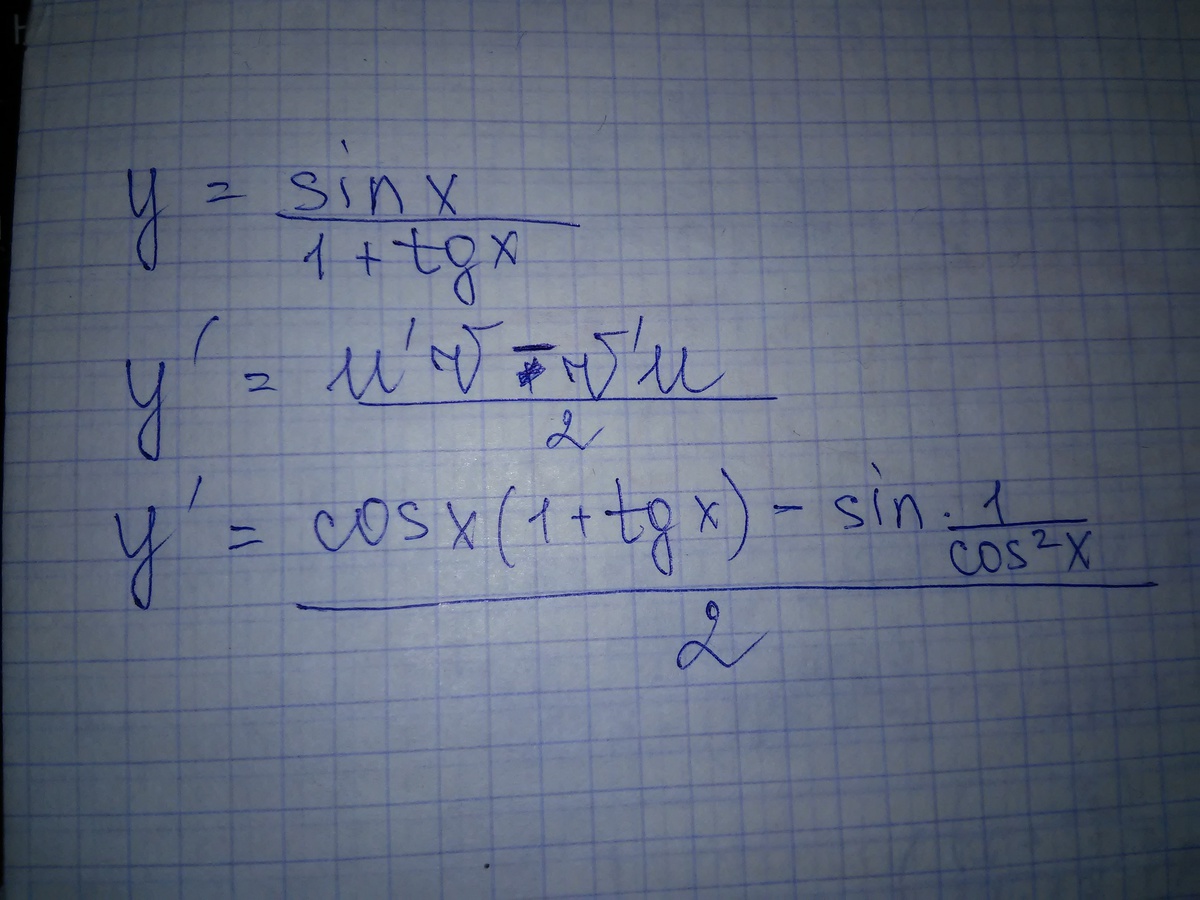 y = sin x / 1 + tg x
y' = u'v - v'u / 2
y' = cos x (1 + tg x) - sin · 1 / cos² x / 2